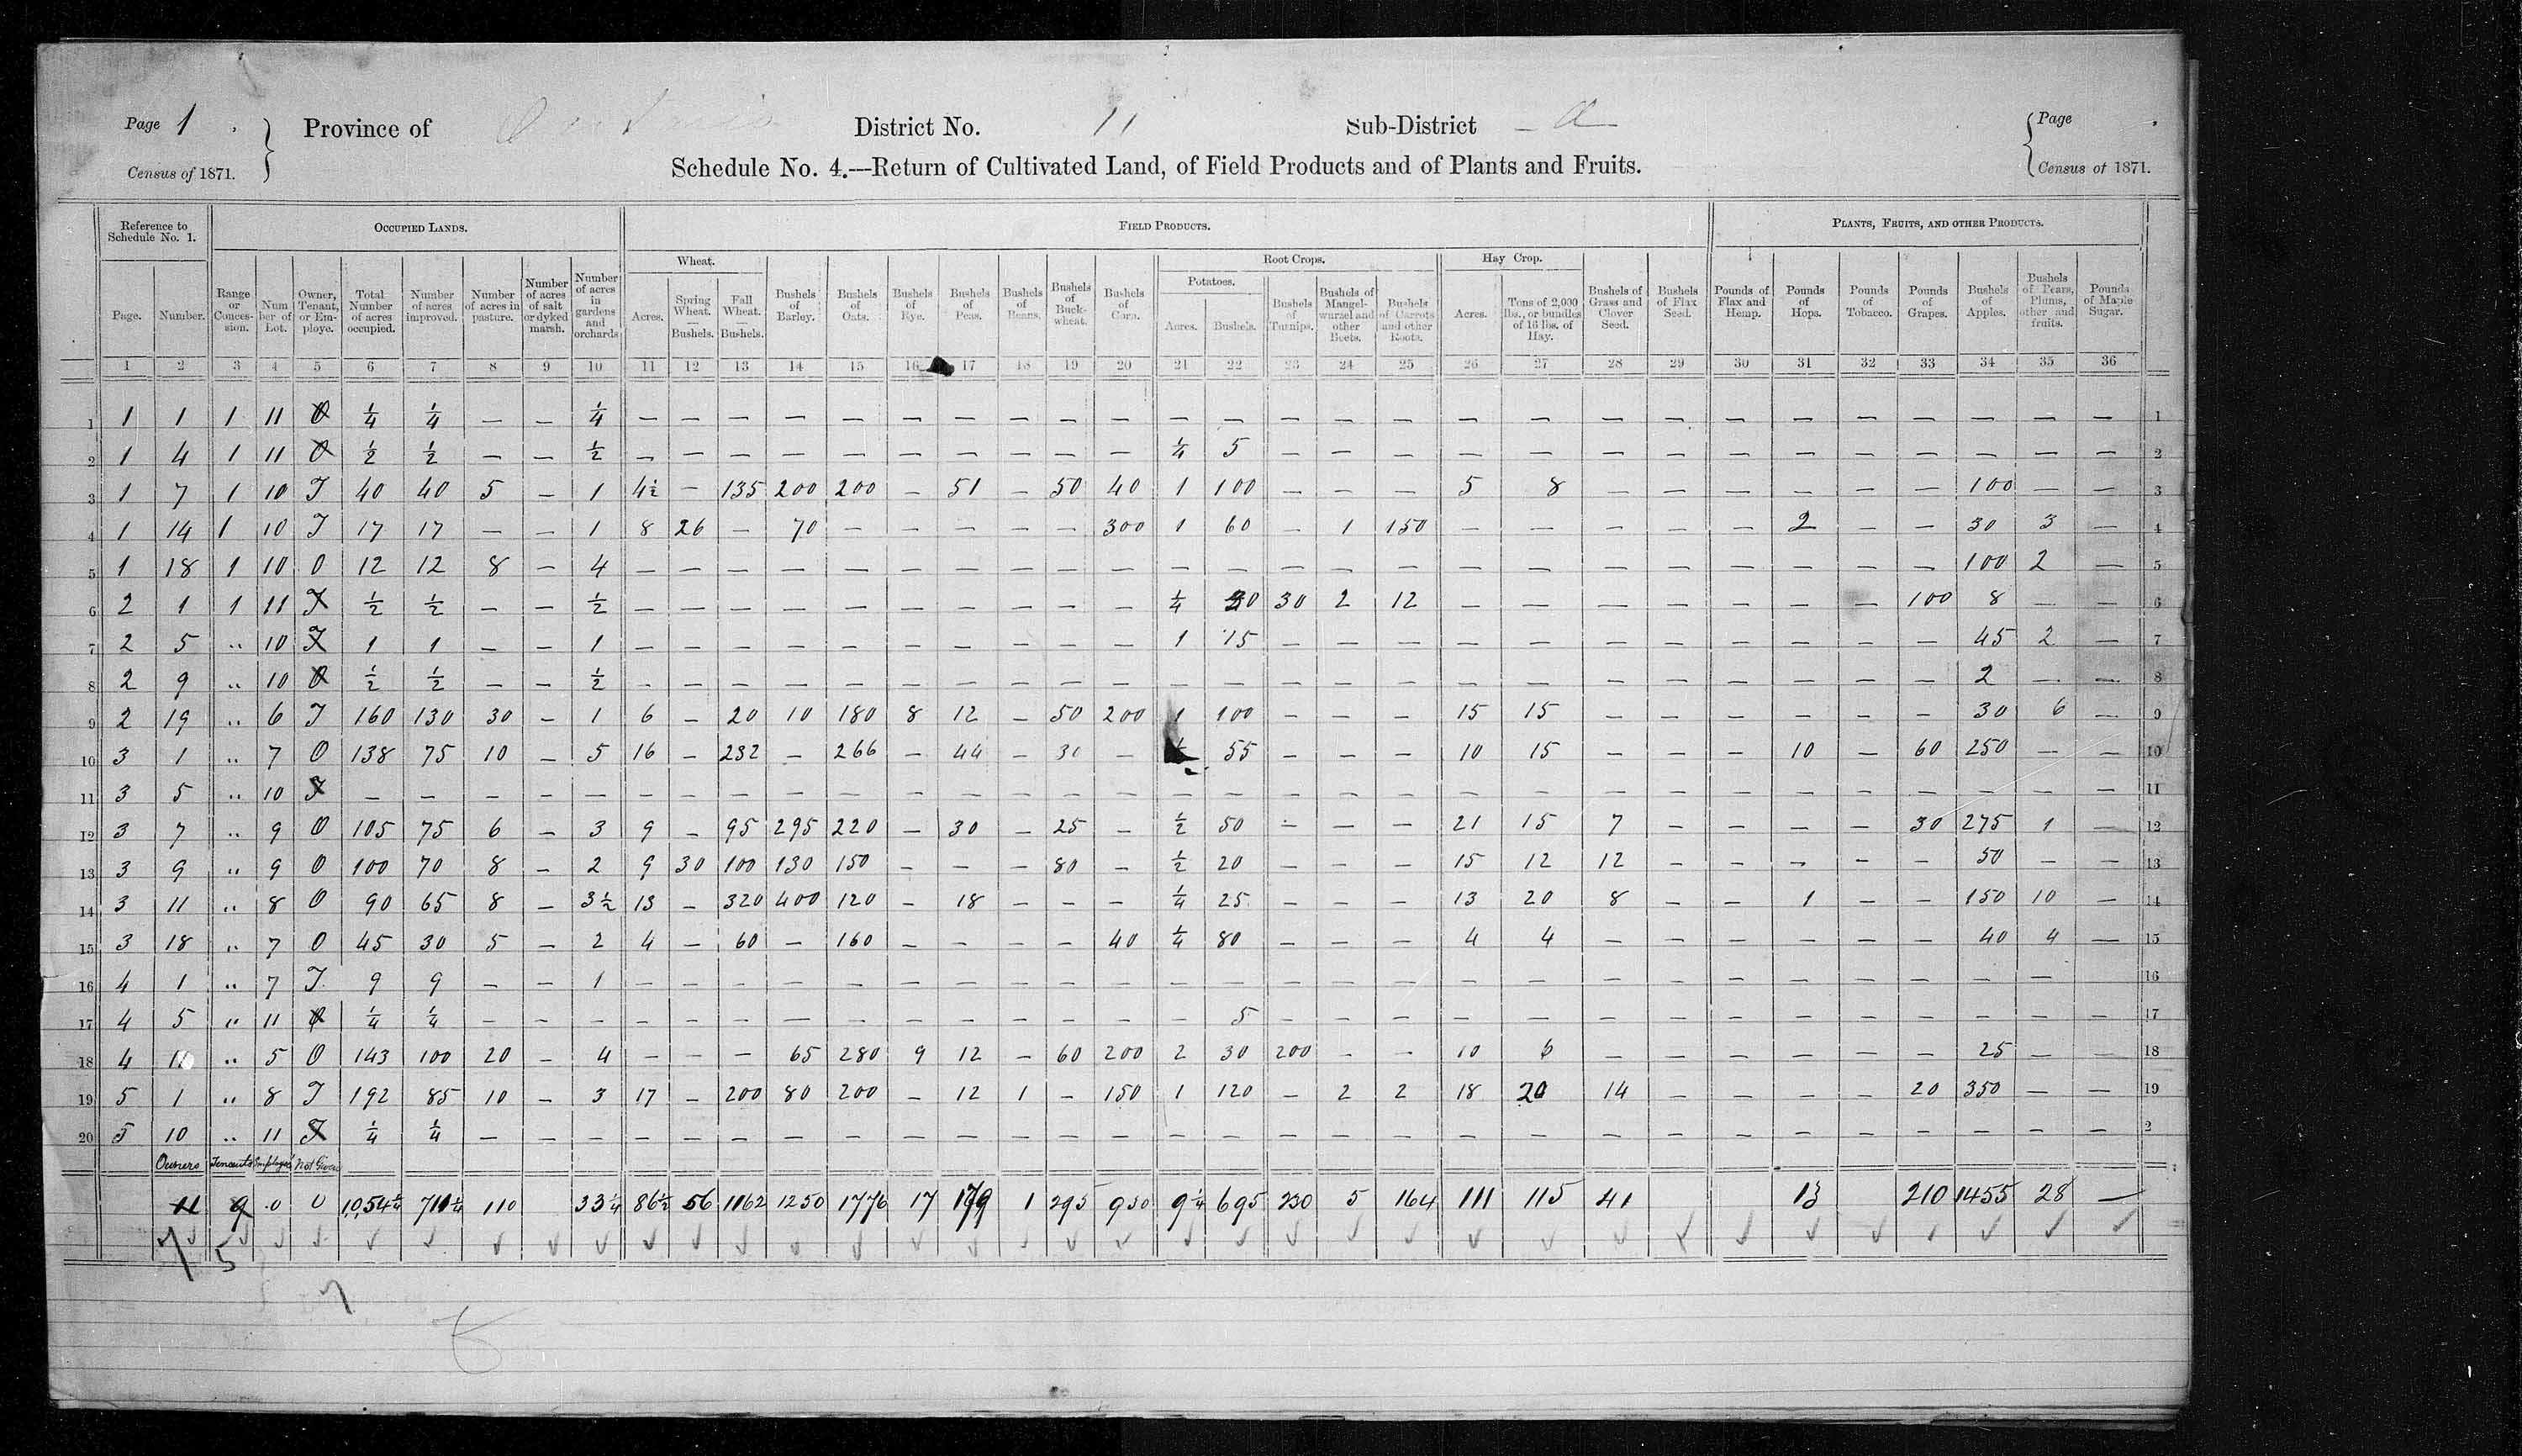 Page 1 Province of Ontario District No. 11 Sub-District - a Page
Census of 1871. Schedule No. 4.---Return of Cultivated Land, of Field Products and of Plants and Fruits. Census of 1871.
Reference to Schedule No. 1. OCCUPIED LANDS. FIELD PRODUCTS. PLANTS, FRUITS, AND OTHER PRODUCTS.
Wheat. Root Crops. Hay Crop.
Potatoes.
Page. Number. Range or Conces-sion. Num ber of Lot. Owner, Tenant, or Em-ploye. Total Number of acres occupied. Number of acres improved. Number of acres in pasture. Number of acres of salt or dyked marsh. Number of acres in gardens and orchards Acres. Spring Wheat. — Bushels. Fall Wheat. — Bushels. Bushels of Barley. Bushels of Oats. Bushels of Rye. Bushels of Peas. Bushels of Beans. Bushels of Buck-wheat. Bushels of Corn. Acres. Bushels. Bushels of Turnips. Bushels of Mangel-wurzel and other Beets. Bushels of Carrots and other Roots. Acres. Tons of 2,000 lbs., or bundles of 16 lbs. of Hay. Bushels of Grass and Clover Seed. Bushels of Flax Seed. Pounds of Flax and Hemp. Pounds of Hops. Pounds of Tobacco. Pounds of Grapes. Bushels of Apples. Bushels of Pears, Plums, other and fruits. Pounds of Maple Sugar.
1 2 3 4 5 6 7 8 9 10 11 12 13 14 15 16 17 18 19 20 21 22 23 24 25 26 27 28 29 30 31 32 33 34 35 36
1 1 1 1 11 O ¼ ¼ — — ¼ — — — — — — — — — — — — — — — — — — — — — — — — — — 1
2 1 4 1 11 O ½ ½ — — ½ — — — — — — — — — — ¼ 5 — — — — — — — — — — — — — — 2
3 1 7 1 10 T 40 40 5 — 1 4½ — 135 200 200 — 51 — 50 40 1 100 — — — 5 8 — — — — — — 100 — — 3
4 1 14 1 10 T 17 17 — — 1 8 26 — 70 — — — — — 300 1 60 — 1 150 — — — — — 2 — — 30 3 — 4
5 1 18 1 10 O 12 12 8 — 4 — — — — — — — — — — — — — — — — — — — — — — — 100 2 — 5
6 2 1 1 11 T ½ ½ — — ½ — — — — — — — — — — ¼ 30 2 12 — — — — — — — 100 8 — — 6
7 2 5 " 10 T 1 1 — — 1 — — — — — — — — — — 1 15 — — — — — — — — — — — 45 2 — 7
8 2 9 " 10 O ½ ½ — — ½ — — — — — — — — — — — — — — — — — — — — — — — 2 — — 8
9 2 19 " 6 T 160 130 30 — 1 6 — 20 10 180 8 12 — 50 200 1 100 — — — 15 15 — — — — — — 30 6 — 9
10 3 1 " 7 O 138 75 10 — 5 16 — 232 — 266 — 44 — 30 — 55 — — — 10 15 — — — 10 — 60 250 — — 10
11 3 5 " 10 T — — — — — — — — — — — — — — — — — — — — — — — — — — — — — — — 11
12 3 7 " 9 O 105 75 6 — 3 9 — 95 295 220 — 30 — 25 — ½ 50 — — — 21 15 7 — — — — 30 275 1 — 12
13 3 9 " 9 O 100 70 8 — 2 9 30 100 130 150 — — — 80 — ½ 20 — — — 15 12 12 — — — — — 50 — — 13
14 3 11 " 8 O 90 65 8 — 3½ 13 — 320 400 120 — 18 — — — ¼ 25 — — — 13 20 8 — — 1 — — 150 10 — 14
15 3 18 " 7 O 45 30 5 — 2 4 — 60 — 160 — — — — 40 ¼ 80 — — — 4 4 — — — — — — 40 4 — 15
16 4 1 " 7 T 9 9 — — 1 — — — — — — — — — — — — — — — — — — — — — — — — — 16
17 4 5 " 11 O ¼ ¼ — — — — — — — — — — — — — — 5 — — — — — — — — — — — — — — 17
18 4 " 5 O 143 100 20 — 4 — — — 65 280 9 12 — 60 200 2 30 200 — — 10 6 — — — — — — 25 — — 18
19 5 1 " 8 T 192 85 10 — 3 17 — 200 80 200 — 12 1 — 150 1 120 — 2 2 18 20 14 — — — — 20 350 — — 19
20 5 10 " 11 T ¼ ¼ — — — — — — — — — — — — — — — — — — — — — — — — — — — — — 2
Owners Tenants Employes Not Given
11 9 0 0 1,054¼ 711¼ 110 33¼ 86½ 56 1162 1250 1776 17 179 1 295 930 9¼ 695 230 5 164 111 115 41 13 210 1455 28 —
7 5
7